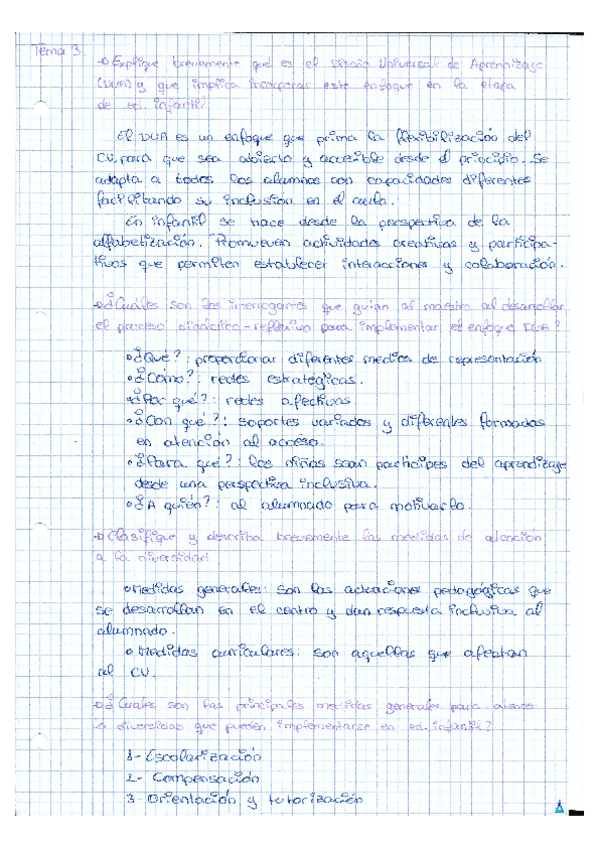 Tema 3.
→ Explique brevemente qué es el Diseño Universal de Aprendizaje
(DUA) y que implica incorporar este enfoque en la etapa
de ed. infantil?
El DUA es un enfoque que prima la flexibilización del
CV, para que sea abierto y accesible desde el principio. Se
adapta a todos los alumnos con capacidades diferentes
facilitando su inclusión en el aula.
En infantil se hace desde la perspectiva de la
alfabetización. Promueven actividades creativas y participa-
tivas que permiten establecer interacciones y colaboración.
→ ¿Cuáles son los interrogantes que guían al maestro al desarrollar
el proceso didáctico-reflexivo para implementar el enfoque DUA?
• ¿Qué?: proporcionar diferentes medios de representación
• ¿Cómo?: redes estratégicas.
• ¿Por qué?: redes afectivas.
• ¿Con qué?: soportes variados y diferentes formados
en atención al acceso.
• ¿Para qué?: los niños sean partícipes del aprendizaje
desde una perspectiva inclusiva.
• ¿A quién?: al alumnado para motivarlo.
→ Clasifique y describa brevemente las medidas de atención
a la diversidad:
• Medidas generales: son las actuaciones pedagógicas que
se desarrollan en el centro y dan respuesta inclusiva al
alumnado.
• Medidas curriculares: son aquellas que afectan
al CV.
→ ¿Cuáles son las principales medidas generales para atender
a diversidad que pueden implementarse en ed. infantil?
1- Escolarización
2- Compensación
3- Orientación y tutorización